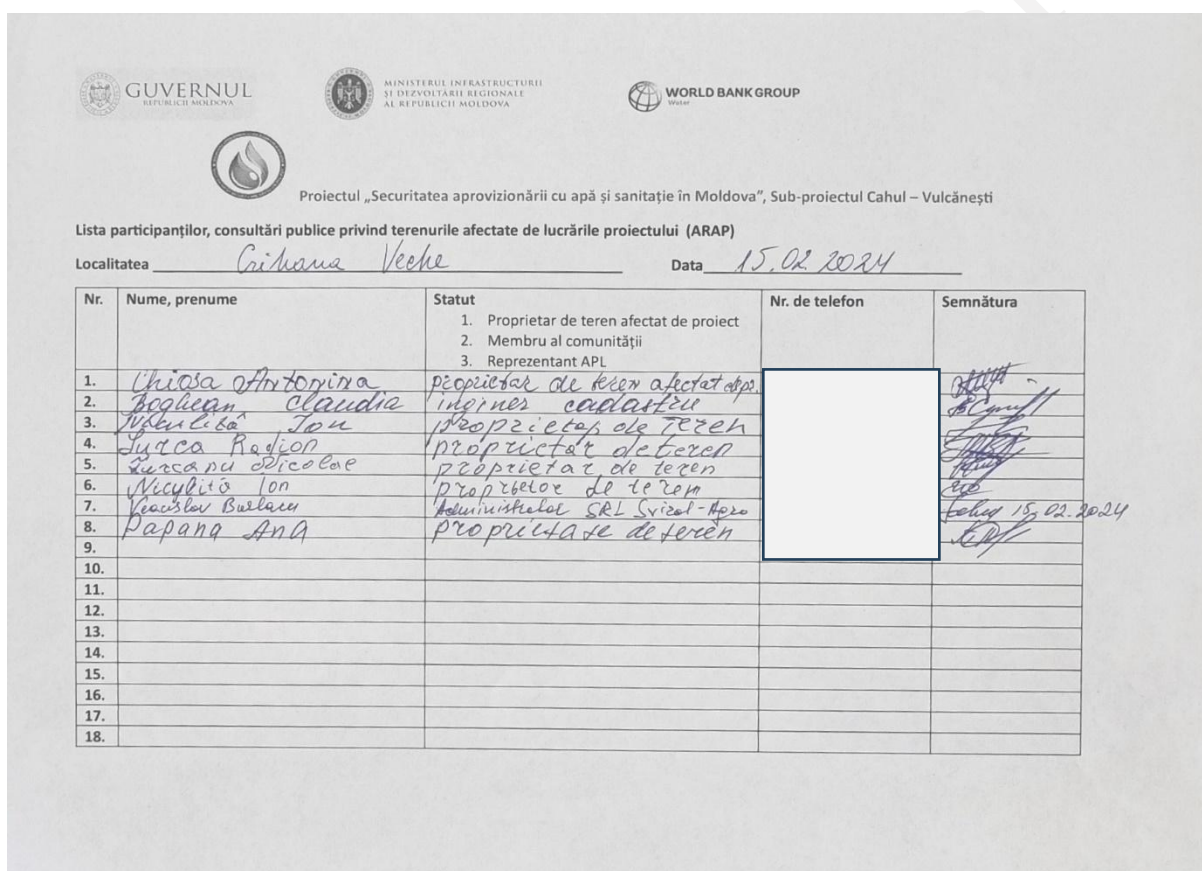 GUVERNUL
REPUBLICII MOLDOVA
MINISTERUL INFRASTRUCTURII
ȘI DEZVOLTĂRII REGIONALE
AL REPUBLICII MOLDOVA
WORLD BANK GROUP
Water
Proiectul „Securitatea aprovizionării cu apă și sanitație în Moldova”, Sub-proiectul Cahul – Vulcănești
Lista participanților, consultări publice privind terenurile afectate de lucrările proiectului (ARAP)
Localitatea Crihana Veche Data 15.02.2024
Nr. Nume, prenume Statut Nr. de telefon Semnătura
1. Proprietar de teren afectat de proiect
2. Membru al comunității
3. Reprezentant APL
1. Chiosa Antonina proprietar de teren afectat
2. Boghean Claudia inginer cadastru
3. Ion proprietar de teren
4. Țurca Radion proprietar de teren
5. Țurcanu Nicolae proprietar de teren
6. Niculiță Ion de teren
7. Veaceslav Burlacu Administrator SRL Svizol-Agro 15.02.2024
8. Papana Ana proprietate de teren
9.
10.
11.
12.
13.
14.
15.
16.
17.
18.